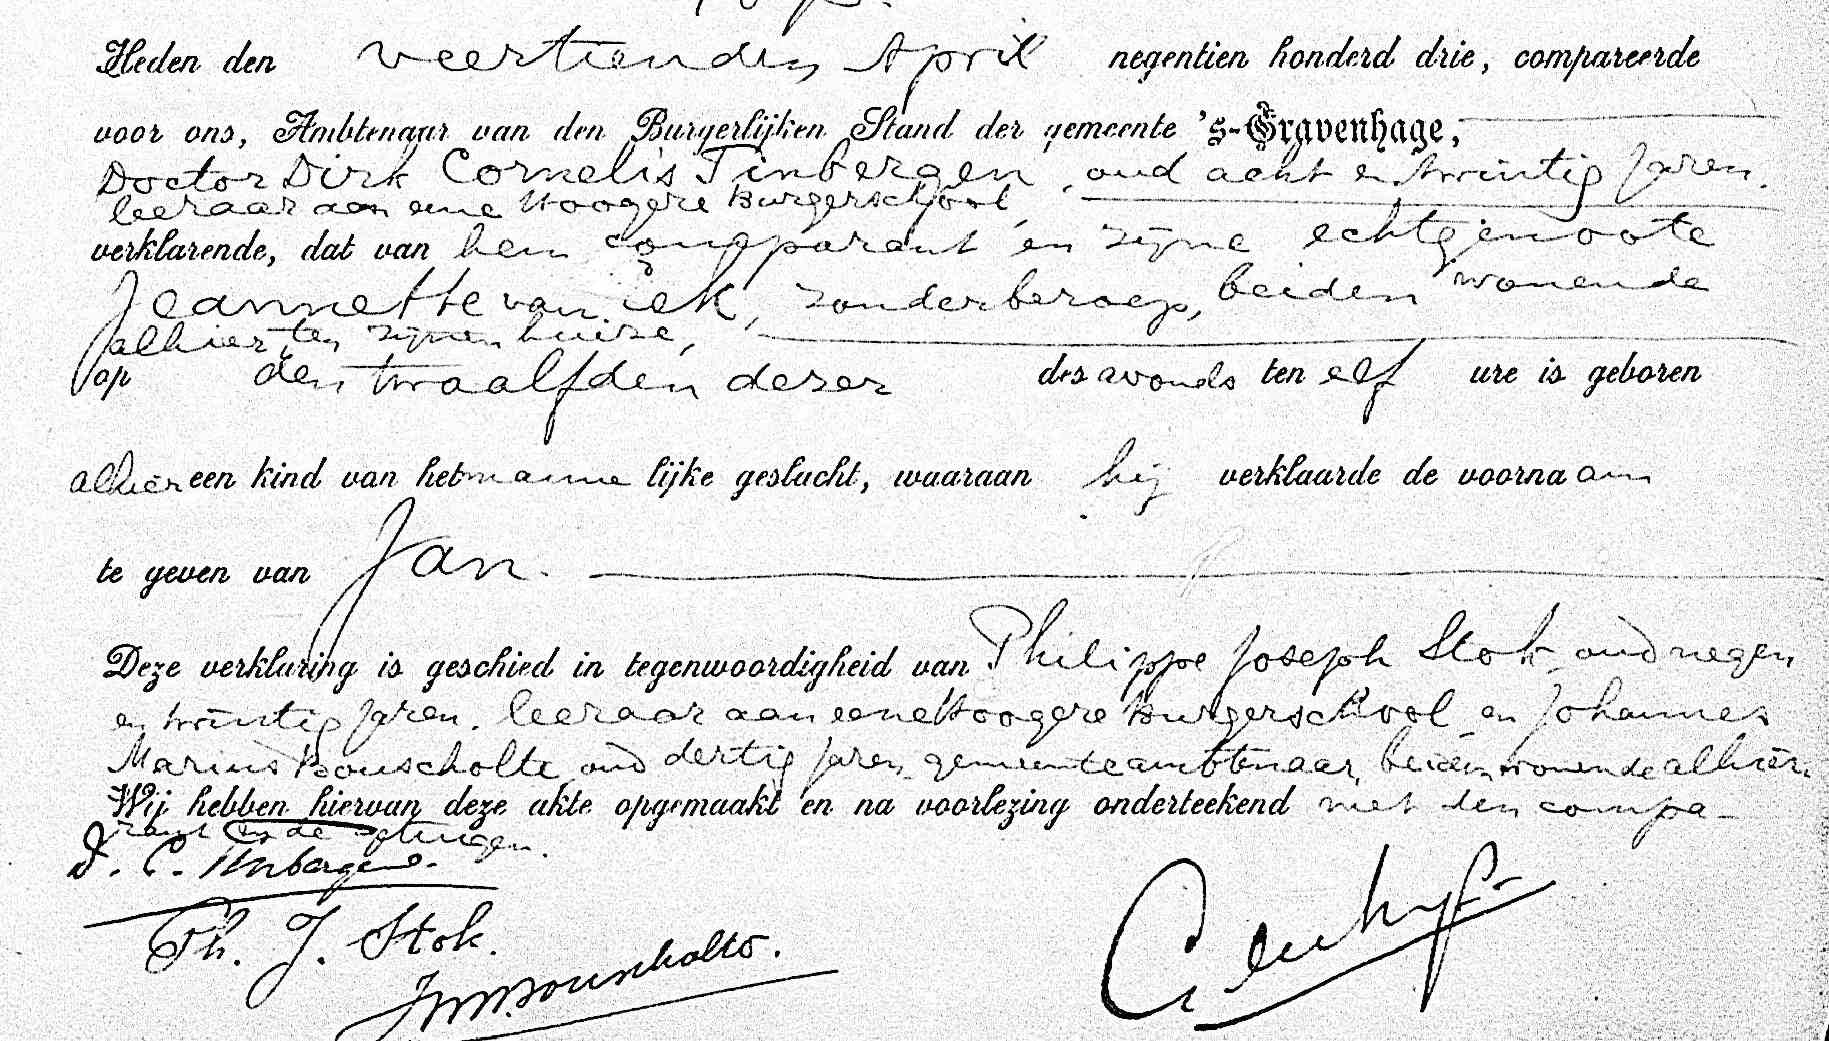 Heden den veertienden April negentien honderd drie, compareerde
voor ons, Ambtenaar van den Burgerlijken Stand der gemeente 's-Gravenhage,
Doctor Dirk Cornelis Tinbergen, oud acht en twintig jaren.
leeraar aan eene Hoogere Burgerschool,
verklarende, dat van hem comparant en zijne echtgenoote
Jeannette van Eek, zonder beroep, beiden wonende
alhier, ten zijnen huize,
op den twaalfden dezer des avonds ten elf ure is geboren
alhier een kind van het mannelijke geslacht, waaraan hij verklaarde de voornaam
te geven van Jan.
Deze verklaring is geschied in tegenwoordigheid van Philippe Joseph Stok, oud negen
en twintig jaren, leeraar aan eene Hoogere Burgerschool en Johannes
Marius Bouscholte, oud dertig jaren, gemeenteambtenaar, beiden wonende alhier.
Wij hebben hiervan deze akte opgemaakt en na voorlezing onderteekend met den compa-
rant en de getuigen.
D. C. Tinbergen.
Ph. J. Stok.
J M Bouscholte.